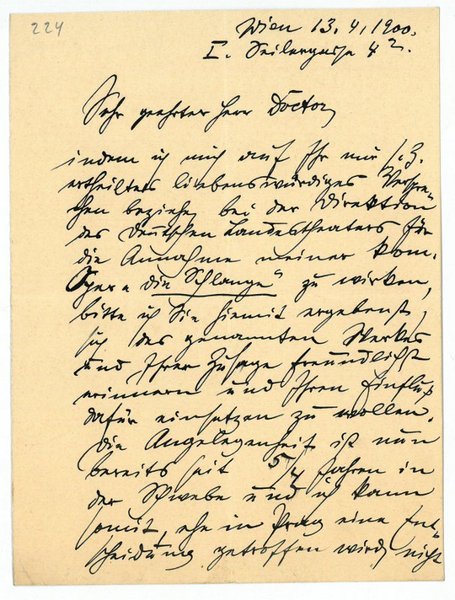 224
Wien 13.4.1900.
I. Seilergasse 4 2.
Sehr geehrter Herr Doctor,
indem ich mich auf Ihr mir s. Z.
ertheiltes liebenswürdiges Verspre-
chen beziehe, bei der Direktion
des Deutschen Landestheaters für
die Annahme meiner kom.
Oper „die Schlange“ zu wirken,
bitte ich Sie hiemit ergebenst,
sich des genannten Werkes
und Ihrer Zusage freundlichst
erinnern und Ihren Einfluß
dafür einsetzen zu wollen.
Die Angelegenheit ist nun
bereits seit 5/4 Jahren in
der Schwebe und ich kann
somit, ehe in Prag eine Ent-
scheidung getroffen wird, nicht